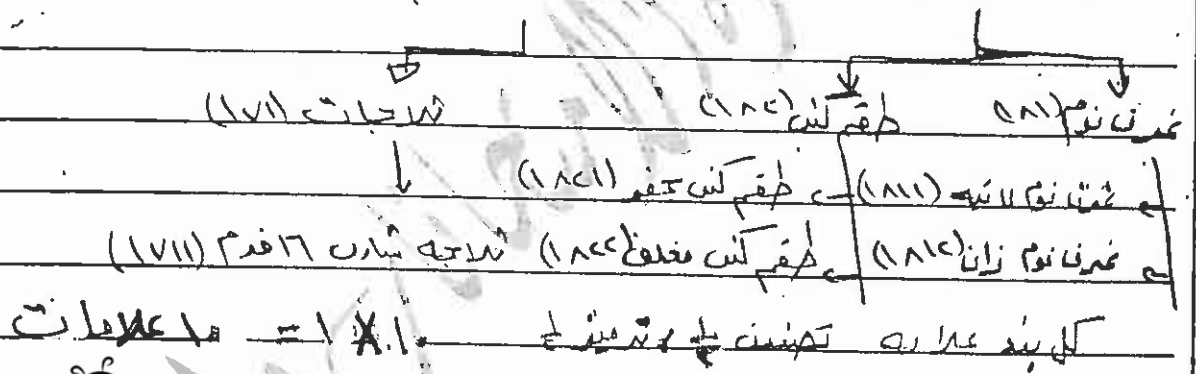 غرف نوم (١٨١) طقم كنب (١٨٢) ثلاجات (١٧١)
غرف نوم لاتيه (١٨١١) طقم كنب حفر (١٨٢١)
غرف نوم زان (١٨١٢) طقم كنب مغلف (١٨٢٢) ثلاجه شارب ١٦ قدم (١٧١١)
كل بند علامه تصنيف ½ وترميز ½ ١٠ × ١ = ١٠ علامات